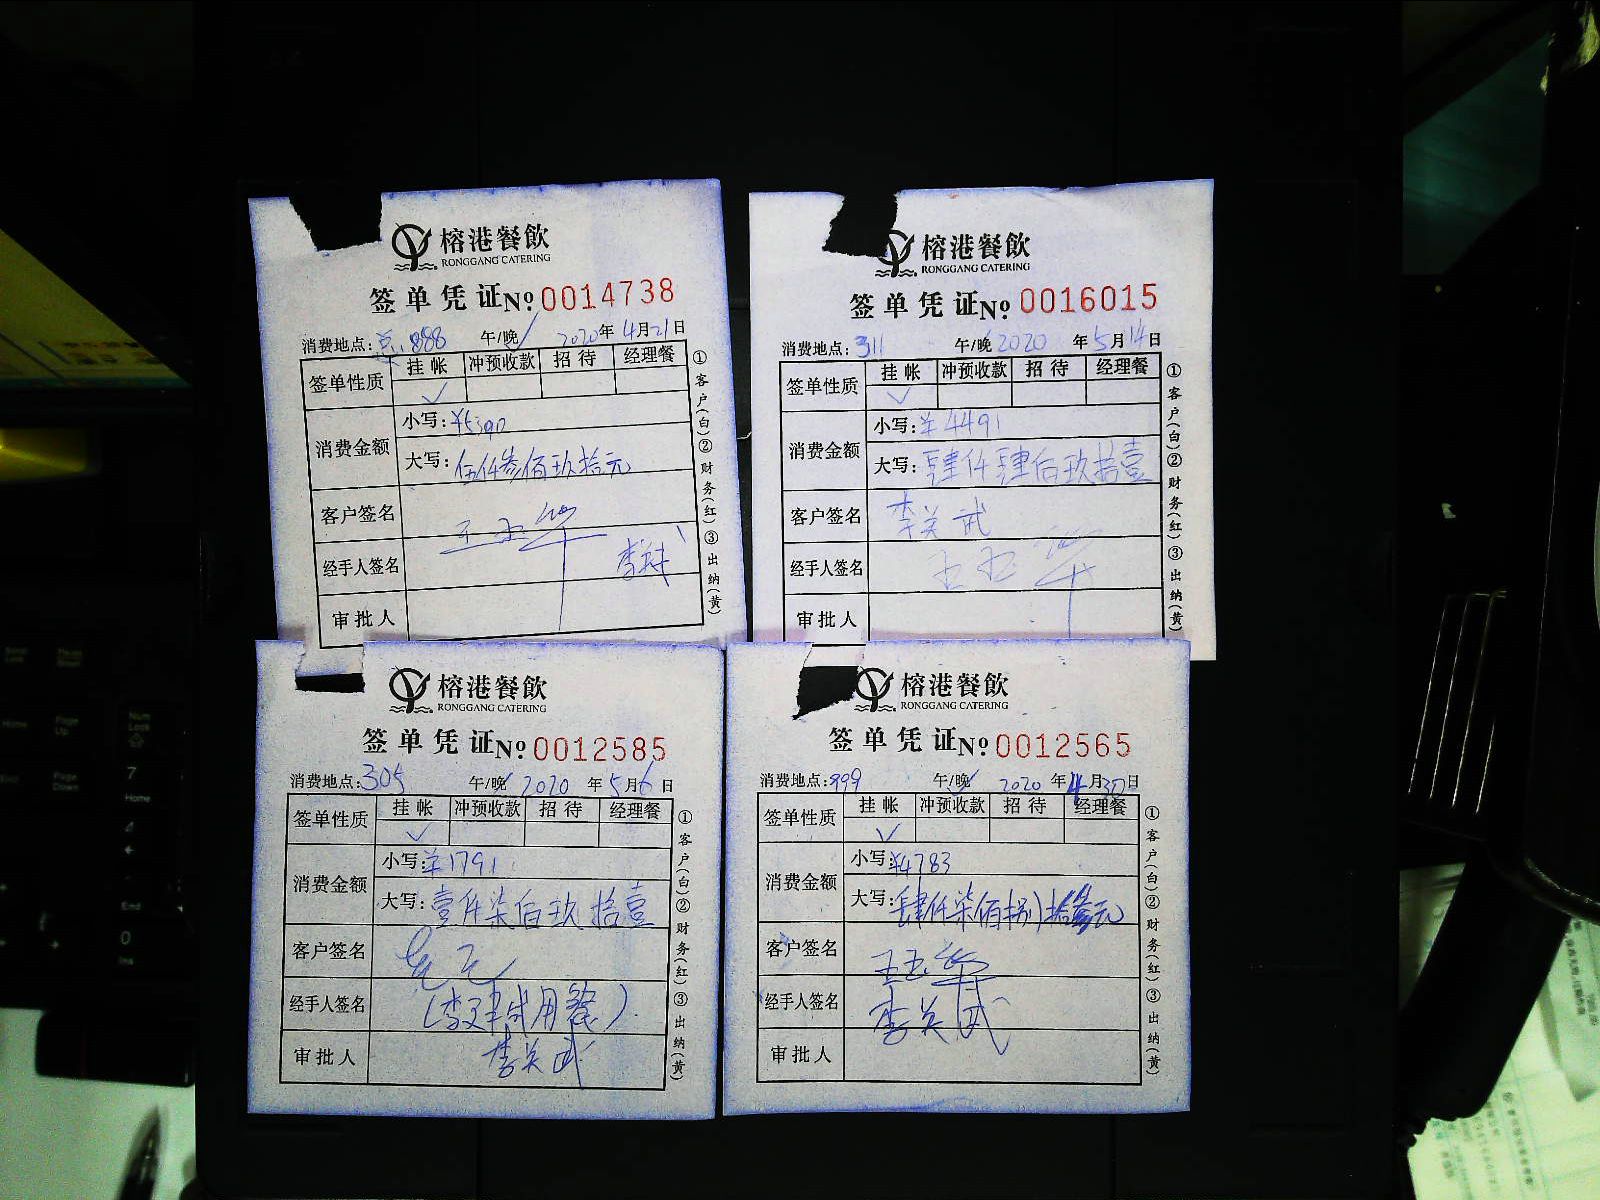 榕港餐飲
RONGGANG CATERING
签单凭证№0014738
消费地点: 888 午/晚 2020年4月21日
签单性质 挂帐 冲预收款 招待 经理餐
消费金额
小写:¥5390
大写:伍仟叁佰玖拾元
客户签名
经手人签名
审批人
①客户(白)②财务(红)③出纳(黄)
榕港餐飲
RONGGANG CATERING
签单凭证№0016015
消费地点:311 午/晚 2020年5月14日
签单性质 挂帐 冲预收款 招待 经理餐
消费金额
小写:¥4491
大写:肆仟肆佰玖拾壹
客户签名 李关武
经手人签名 王玉华
审批人
①客户(白)②财务(红)③出纳(黄)
榕港餐飲
RONGGANG CATERING
签单凭证№0012585
消费地点:305 午/晚 2020年5月6日
签单性质 挂帐 冲预收款 招待 经理餐
消费金额
小写:¥1791
大写:壹仟柒佰玖拾壹
客户签名
经手人签名
审批人 李关武
①客户(白)②财务(红)③出纳(黄)
榕港餐飲
RONGGANG CATERING
签单凭证№0012565
消费地点:999 午/晚 2020年4月30日
签单性质 挂帐 冲预收款 招待 经理餐
消费金额
小写:¥4783
大写:肆仟柒佰捌拾叁元
客户签名 王玉华
经手人签名 李关武
审批人
①客户(白)②财务(红)③出纳(黄)